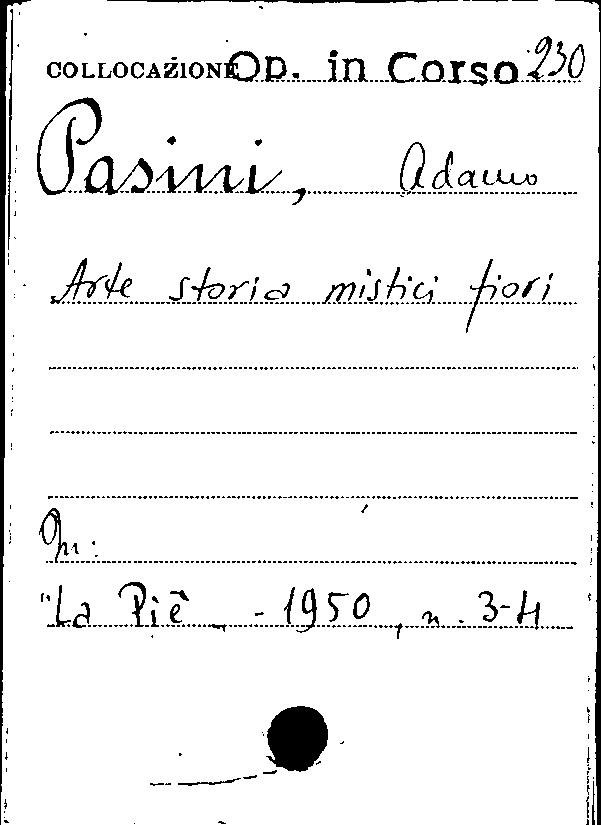 COLLOCAZIONE Op. in Corso 230
Pasini, Adamo
Arte storia mistici fiori
In:
"La Piê„ - 1950, n. 3-4